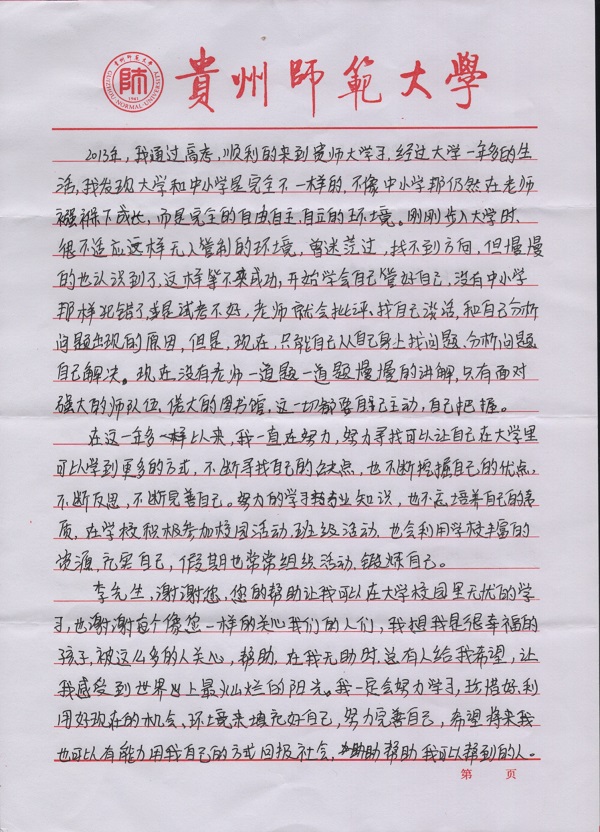 貴州師範大學
貴州師範大學
GUIZHOU NORMAL UNIVERSITY
1941
2013年，我通过高考，顺利的来到贵师大学习，经过大学一年多的生
活，我发现大学和中小学是完全不一样的，不像中小学那仍然在老师
襁褓下成长，而是完全的自由自主、自立的环境。刚刚步入大学时，
很不适应这样无人管制的环境，曾迷茫过，找不到方向，但慢慢
的也认识到了，这样等不来成功，开始学会自己管好自己，没有中小学
那样犯错了或是试考不好，老师就会批评、找自己谈话，和自己分析
问题出现的原因，但是，现在，只能自己从自己身上找问题、分析问题
自己解决。现在没有老师一道题一道题慢慢的讲解，只有面对
强大的师队伍、偌大的图书馆，这一切都要自己主动，自己把握。
在这一年多以来，我一直在努力，努力寻找可以让自己在大学里
可以学到更多的方式，不断寻找自己的缺点，也不断挖掘自己的优点，
不断反思，不断完善自己。努力的学习专业知识，也不忘培养自己的素
质，在学校积极参加校园活动、班级活动，也会利用学校丰富的
资源充实自己，假期也常常组织活动，锻炼自己。
李先生，谢谢您，您的帮助让我可以在大学校园里无忧的学
习，也谢谢每个像您一样的关心我们的人们，我想我是很幸福的
孩子，被这么多的人关心，帮助，在我无助时，总有人给我希望，让
我感受到世界上最灿烂的阳光。我一定会努力学习，珍惜好、利
用好现在的机会、环境来填充好自己，努力完善自己，希望将来我
也可以有能力用我自己的方式回报社会，帮助我可以帮到的人。
第 页